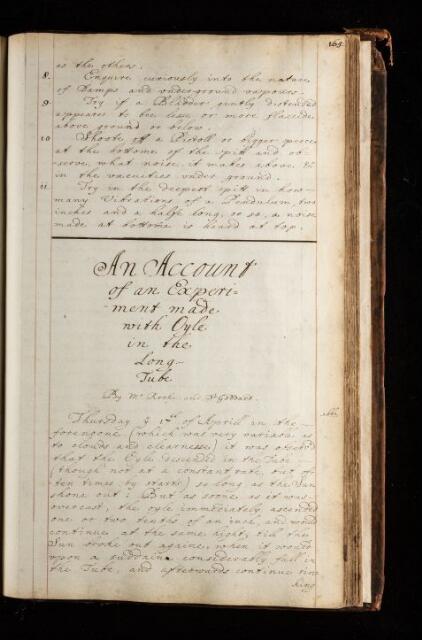 165.
as the others.
8. Enquire curiously into the nature
of Damps and underground vapours.
9 Try if a Bladder gently distended
appeares to bee less or more flaccide
above ground or below.
10 Shoote off a Pistoll or bigger peece
at the bottome of the pitt and ob-
serve what noise it makes above &
in the vacuities under ground.
11 Try in the deepest pitt in how
many Vibrations of a Pendulum, two
inches and a halfe long, or so, a noise
made at bottome is heard at top.
An Account
of an Experi-
-ment made
with Oyle
in the
Long-
Tube
By Mr Rook and Dr Goddard.
Thursday ye of Aprill in the
forenoone (which was very various as
to clouds and clearness) it was
that the Oyle descended in the Tube
(though not at a constant rate, but of-
ten times by starts) so long as the Sun
shone out: But as soone as it was
overcast, the oyle immediately ascended
one or two tenths of an inch, and would
continue at the same hight, till the
Sun broke out againe, when it would
upon a suddaine considerably fall in
the Tube, and afterwards continue sin-
king